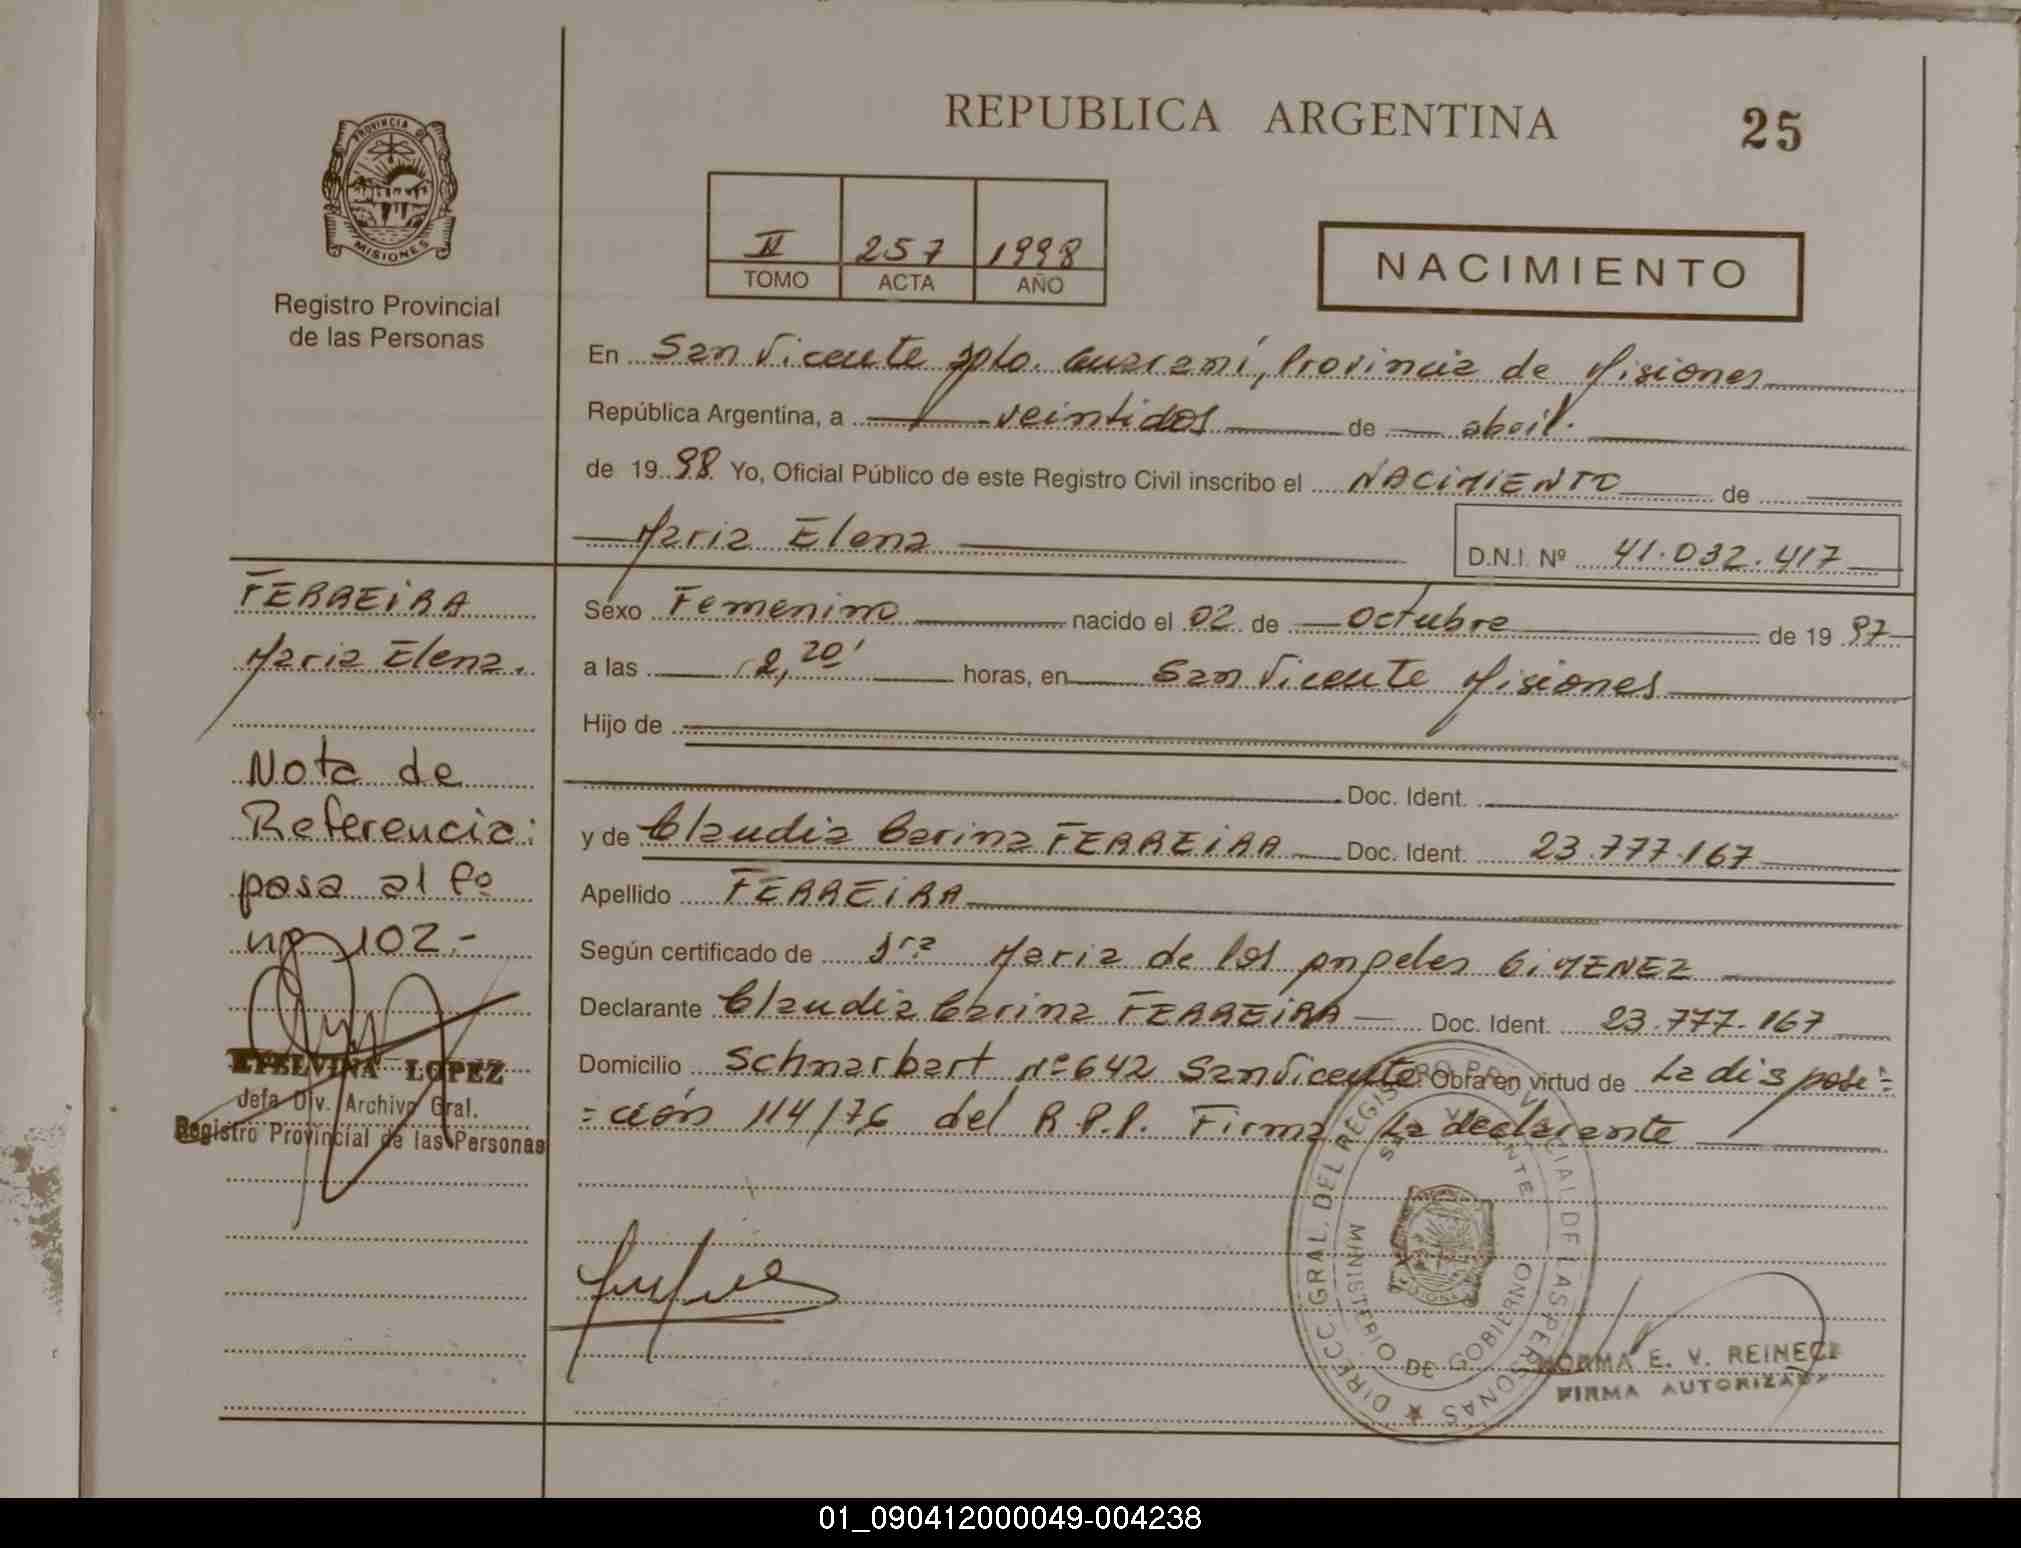 REPUBLICA ARGENTINA
25
PROVINCIA DE
MISIONES
Registro Provincial
de las Personas
II 257 1998
TOMO ACTA AÑO
NACIMIENTO
En San Vicente Dpto. Guaraní, Provincia de Misiones
República Argentina, a veintidos de abril.
de 1998 Yo, Oficial Público de este Registro Civil inscribo el NACIMIENTO de
Maria Elena
D.N.I. Nº 41.032.417
FERREIRA
Maria Elena.
Sexo Femenino nacido el 02 de Octubre de 1997
a las 12,20' horas, en San Vicente Misiones
Hijo de
Doc. Ident.
y de Claudia Carina FERREIRA Doc. Ident. 23.777.167
Apellido FERREIRA
Según certificado de Sra Maria de los Angeles GIMENEZ
Declarante Claudia Carina FERREIRA Doc. Ident. 23.777.167
Domicilio Schnarbart Nº 642 San Vicente Obra en virtud de La disposi=
=ción 114/76 del R.P.P. Firma La declarante
Nota de
Referencia:
pasa al fº
nº 102.-
ETELVINA LOPEZ
Jefa Div. Archivo Gral.
Registro Provincial de las Personas
DIRECC. GRAL. DEL REGISTRO PROVINCIAL DE LAS PERSONAS
SAN VICENTE
MINISTERIO DE GOBIERNO
NORMA E. V. REINECK
FIRMA AUTORIZADA
01_090412000049-004238